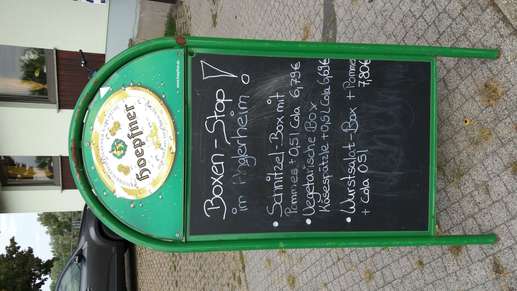 Hoepfner
Boxen-Stop!
im Pfglerheim
• Schnitzel-Box mit
Pommes + 0,5l Cola 6,79€
• Vegetarische Box
Käsespätzle + 0,5l Cola 6,69€
• Wurstsalat-Box + Pommes
+ Cola 0,5l 7,80€